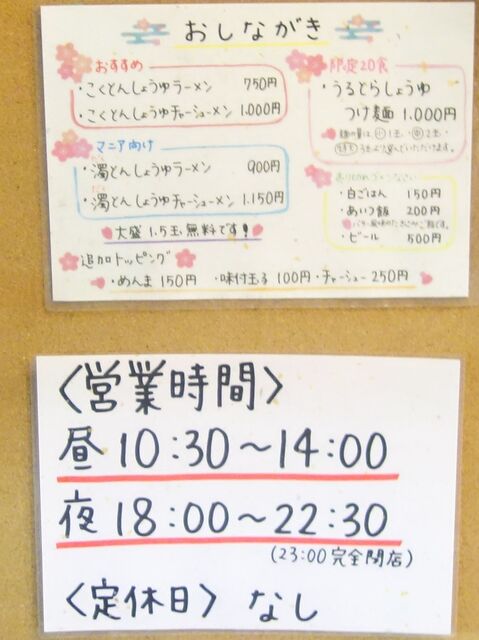 おしながき
おすすめ
・こくとんしょうゆラーメン 750円
・こくとんしょうゆチャーシューメン 1.000円
マニア向け
・濁とんしょうゆラーメン 900円
・濁とんしょうゆチャーシューメン 1.150円
大盛 1.5玉 無料です!
追加トッピング
・めんま 150円 ・味付玉子 100円 ・チャーシュー 250円
限定20食
・うるとらしょうゆ
つけ麺 1.000円
麺の量は、小 1玉、中 2玉、
・白ごはん 150円
・あいつ飯 200円
・ビール 500円
〈営業時間〉
昼 10:30〜14:00
夜 18:00〜22:30
(23:00 完全閉店)
〈定休日〉 なし